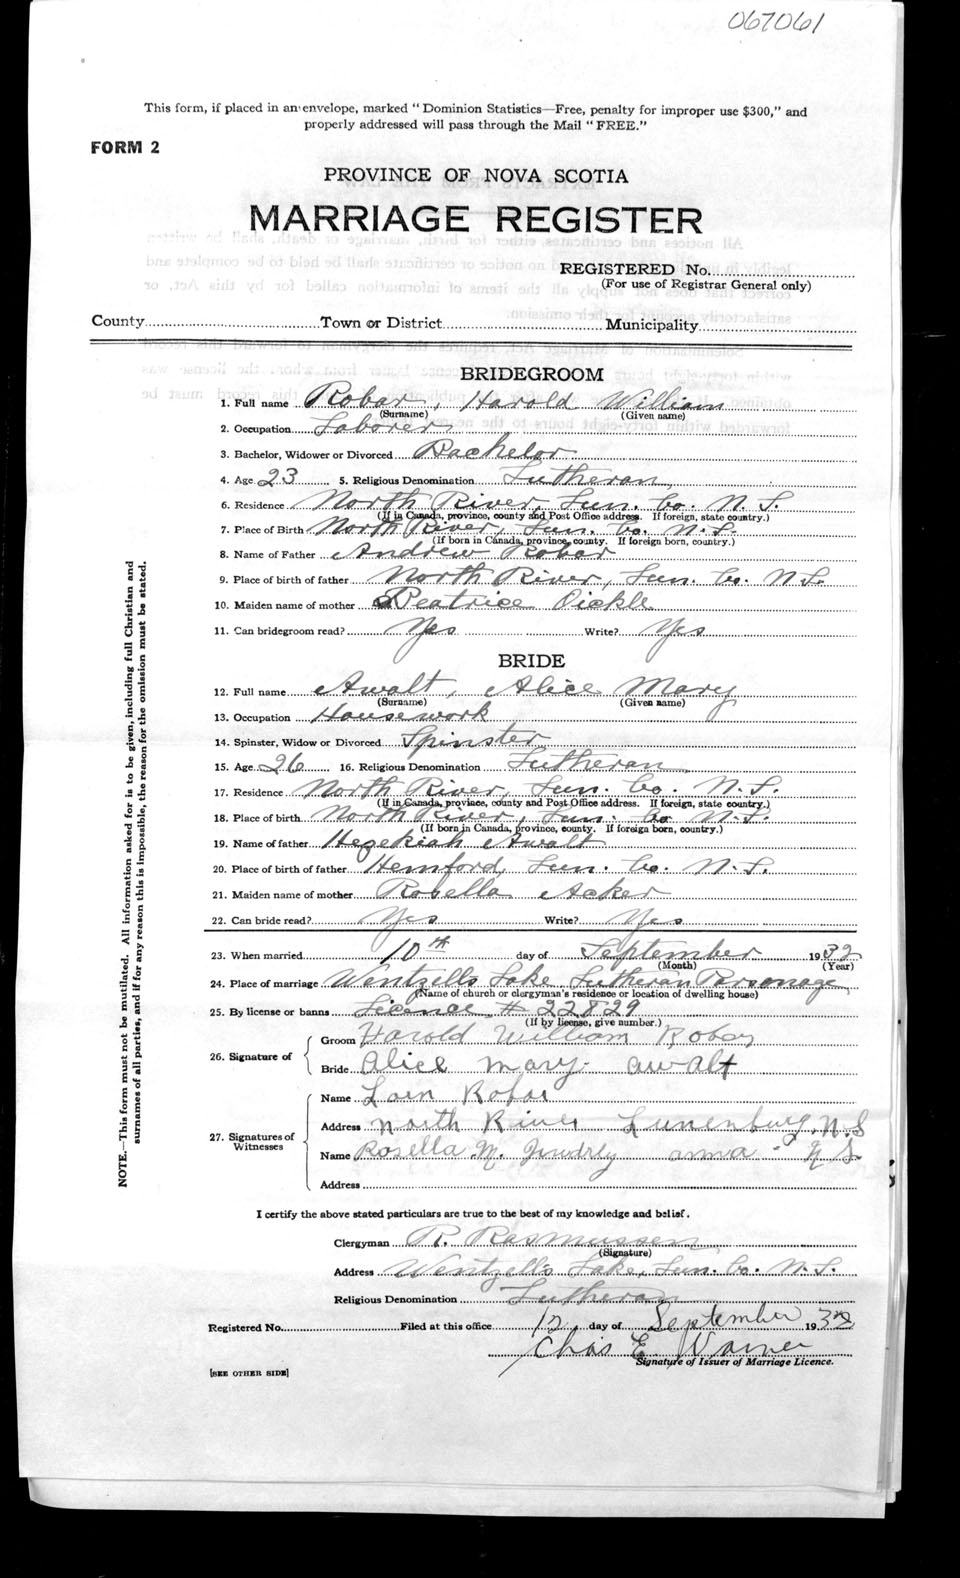 067061
This form, if placed in an envelope, marked "Dominion Statistics—Free, penalty for improper use $300," and
properly addressed will pass through the Mail "FREE."
FORM 2
PROVINCE OF NOVA SCOTIA
MARRIAGE REGISTER
REGISTERED No.
(For use of Registrar General only)
County Town or District Municipality
BRIDEGROOM
1. Full name Robar, Harold William
(Surname) (Given name)
2. Occupation Laborer
3. Bachelor, Widower or Divorced Bachelor
4. Age 23 5. Religious Denomination Lutheran
6. Residence North River, Lun. Co. N. S.
(If in Canada, province, county and Post Office address. If foreign, state country.)
7. Place of Birth North River, Lun. Co. N. S.
(If born in Canada, province, county. If foreign born, country.)
8. Name of Father Andrew Robar
9. Place of birth of father North River, Lun. Co. N S.
10. Maiden name of mother Beatrice Oickle
11. Can bridegroom read? Yes Write? Yes
BRIDE
12. Full name Awalt, Alice Mary
(Surname) (Given name)
13. Occupation Housework
14. Spinster, Widow or Divorced Spinster
15. Age 26 16. Religious Denomination Lutheran
17. Residence North River, Lun. Co. N. S.
(If in Canada, province, county and Post Office address. If foreign, state country.)
18. Place of birth North River, Lun. Co N. S.
(If born in Canada, province, county. If foreign born, country.)
19. Name of father Hezekiah Awalt
20. Place of birth of father Hemford, Lun. Co. N. S.
21. Maiden name of mother Rosella Acker
22. Can bride read? Yes Write? Yes
23. When married 10th day of September 1932
(Month) (Year)
24. Place of marriage Wentzells Lake Lutheran Parsonage
(Name of church or clergyman's residence or location of dwelling house)
25. By license or banns License # 22829
(If by license, give number.)
26. Signature of
Groom Harold William Robar
Bride Alice Mary Awalt
27. Signatures of Witnesses
Name Lorn Robar
Address North River Lunenburg. N. S
Name Rosella M. N S.
Address
I certify the above stated particulars are true to the best of my knowledge and belief.
Clergyman R. Rasmussen
(Signature)
Address Wentzells Lake, Lun. Co. N. S.
Religious Denomination Lutheran
Registered No. Filed at this office 12 day of September 1932
Chas E Warner
Signature of Issuer of Marriage Licence.
[SEE OTHER SIDE]
NOTE.—This form must not be mutilated. All information asked for is to be given, including full Christian and
surnames of all parties, and if for any reason this is impossible, the reason for the omission must be stated.